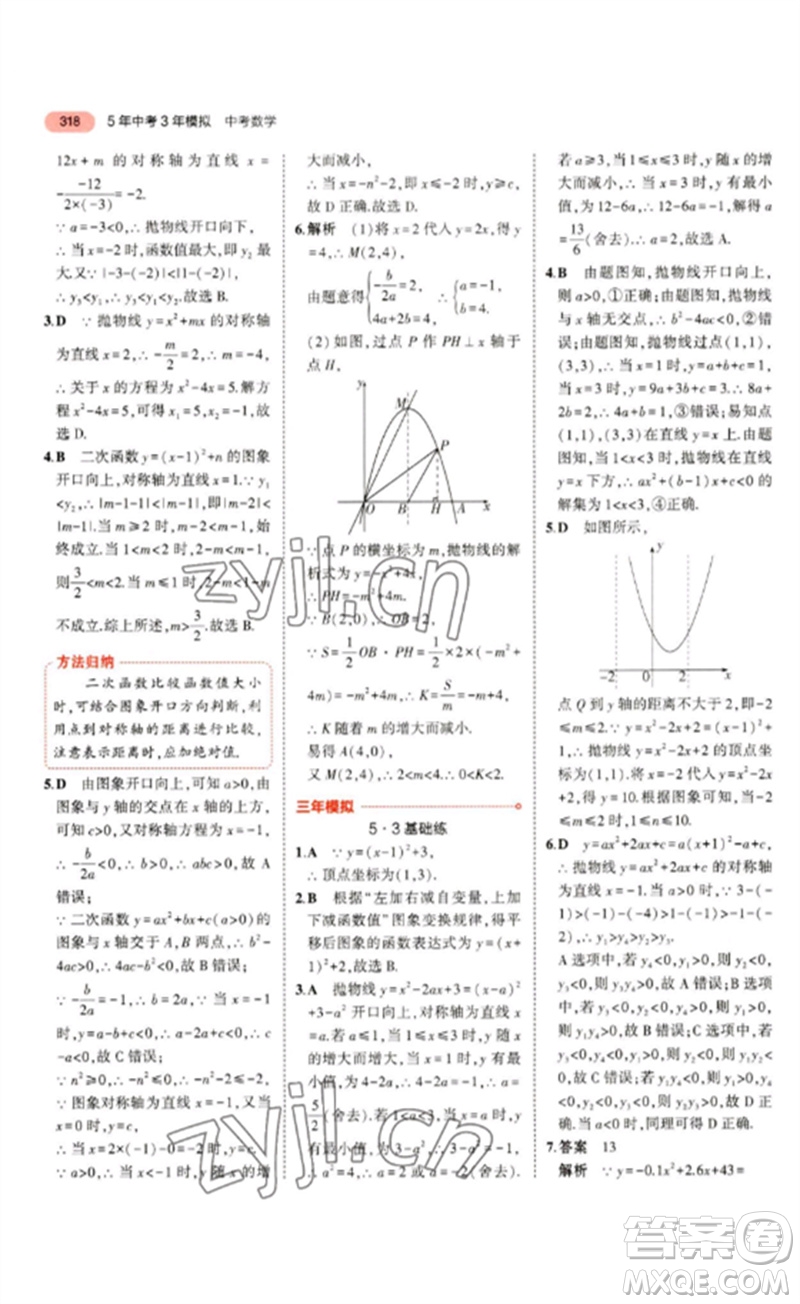 318 5年中考3年模拟 中考数学
12x+m 的对称轴为直线 x=
-\frac{-12}{2×(-3)}=-2.
∵a=-3<0,∴抛物线开口向下,
∴当 x=-2 时,函数值最大,即 y₂ 最
大.又∵|-3-(-2)|<|1-(-2)|,
∴y₃<y₁,∴y₃<y₁<y₂.故选 B.
3.D ∵抛物线 y=x²+mx 的对称轴
为直线 x=2,∴-\frac{m}{2}=2,∴m=-4,
∴关于 x 的方程为 x²-4x=5.解方
程 x²-4x=5,可得 x₁=5,x₂=-1,故
选 D.
4.B 二次函数 y=(x-1)²+n 的图象
开口向上,对称轴为直线 x=1.∵y₁
<y₂,∴|m-1-1|<|m-1|,即|m-2|<
|m-1|.当 m≥2 时,m-2<m-1,始
终成立.当 1<m<2 时,2-m<m-1,
则\frac{3}{2}<m<2.当 m≤1 时,2-m<1-m
不成立.综上所述,m>\frac{3}{2}.故选 B.
方法归纳
二次函数比较函数值大小
时,可结合图象开口方向判断,利
用点到对称轴的距离进行比较,
注意表示距离时,应加绝对值.
5.D 由图象开口向上,可知 a>0,由
图象与 y 轴的交点在 x 轴的上方,
可知 c>0,又对称轴为直线 x=-1,
∴-\frac{b}{2a}<0,∴b>0,∴abc>0,故 A
错误;
∵二次函数 y=ax²+bx+c(a>0)的
图象与 x 轴交于 A,B 两点,∴b²-
4ac>0,∴4ac-b²<0,故 B 错误;
∵-\frac{b}{2a}=-1,∴b=2a,∵当 x=-1
时,y<0,∴a-b+c<0,∴a-2a+c<
0,∴c-a<0,故 C 错误;
∵n²≥0,∴-n²≤0,∴-n²-2≤-2,
∵图象对称轴为直线 x=-1,又当
x=0 时,y=c,∴当 x=-2 时,y=c,
∵a>0,∴当 x<-1 时,y 随 x 的增
大而减小,
∴当 x=-n²-2,即 x≤-2 时,y≥c,
故 D 正确.故选 D.
6.解析 (1)将 x=2 代入 y=2x,得 y
=4,∴M(2,4),
由题意得{-\frac{b}{2a}=2,4a+2b=4,∴{a=-1,b=4.
(2)如图,过点 P 作 PH⊥x 轴于
点 H,
y M P O B H A x
∵点 P 的横坐标为 m,抛物线的解
析式为 y=-x²+4x,
∴PH=-m²+4m.
∵B(2,0),∴OB=2,
∴S=\frac{1}{2}OB·PH=\frac{1}{2}×2×(-m²+
4m)=-m²+4m,∴K=\frac{S}{m}=-m+4,
∴K 随着 m 的增大而减小.
易得 A(4,0),
又 M(2,4),∴2<m<4,∴0<K<2.
三年模拟
5·3基础练
1.A ∵y=(x-1)²+3,
∴顶点坐标为(1,3).
2.B 根据“左加右减自变量,上加
下减函数值”图象变换规律,得平
移后图象的函数表达式为 y=(x+
1)²+2,故选 B.
3.A 抛物线 y=x²-2ax+3=(x-a)²
+3-a² 开口向上,对称轴为直线 x
=a.若 a≤1,当 1≤x≤3 时,y 随 x
的增大而增大,∴当 x=1 时,y 有最
小值,为 4-2a,∴4-2a=-1,∴a=
\frac{5}{2}(舍去).若 1<a<3,当 x=a 时,y
有最小值,为 3-a²,∴3-a²=-1,
∴a²=4,∴a=2或a=-2(舍去).
若 a≥3,当 1≤x≤3 时,y 随 x 的增
大而减小,∴当 x=3 时,y 有最小
值,为 12-6a,∴12-6a=-1,∴a=
\frac{13}{6}(舍去).∴a=2,故选 A.
4.B 由题图知,抛物线开口向上,
则 a>0,①正确;由题图知,抛物线
与 x 轴无交点,∴b²-4ac<0,②错
误;由题图知,抛物线过点(1,1),
(3,3),∴当 x=1 时,y=a+b+c=1,
当 x=3 时,y=9a+3b+c=3,∴8a+
2b=2,∴4a+b=1,③错误;易知点
(1,1),(3,3)在直线 y=x 上,由
题图知,当 1<x<3 时,抛物线在直线
y=x 下方,∴ax²+(b-1)x+c<0 的
解集为 1<x<3,④正确.
5.D 如图所示,
y -2 0 2 x
点 Q 到 y 轴的距离不大于 2,即-2
≤m≤2.
又∵y=x²-2x+2 的图象的顶点坐
标为(1,1),∴n≥1,令 x=-2,
得 y=10.根据题图可知,当-2≤
m≤2时,1≤n≤10.
6.D y=ax²+2ax+c=a(x+1)²-a+c,
对称轴为直线 x=-1.∵3-(-
1)>(-1)-(-3)>1-(-1)…,
∴当 a>0 时,y₁>y₄>y₂>y₃.
A 选项中,若 y₄<0,则 y₂<0,y₃<0,
若 y₁>0,故 A 错误;B 选项中,
若 y₂<0,y₃<0,y₁>0,B 错误;
若 y₃<0,故 C 错误;
当 a<0 时,同理可得只有 D 正确.
7.答案 13
解析 ∵y=-0.1x²+2.6x+43=
zyjl.cn
zyjl.cn
答案圈
MXQE.COM